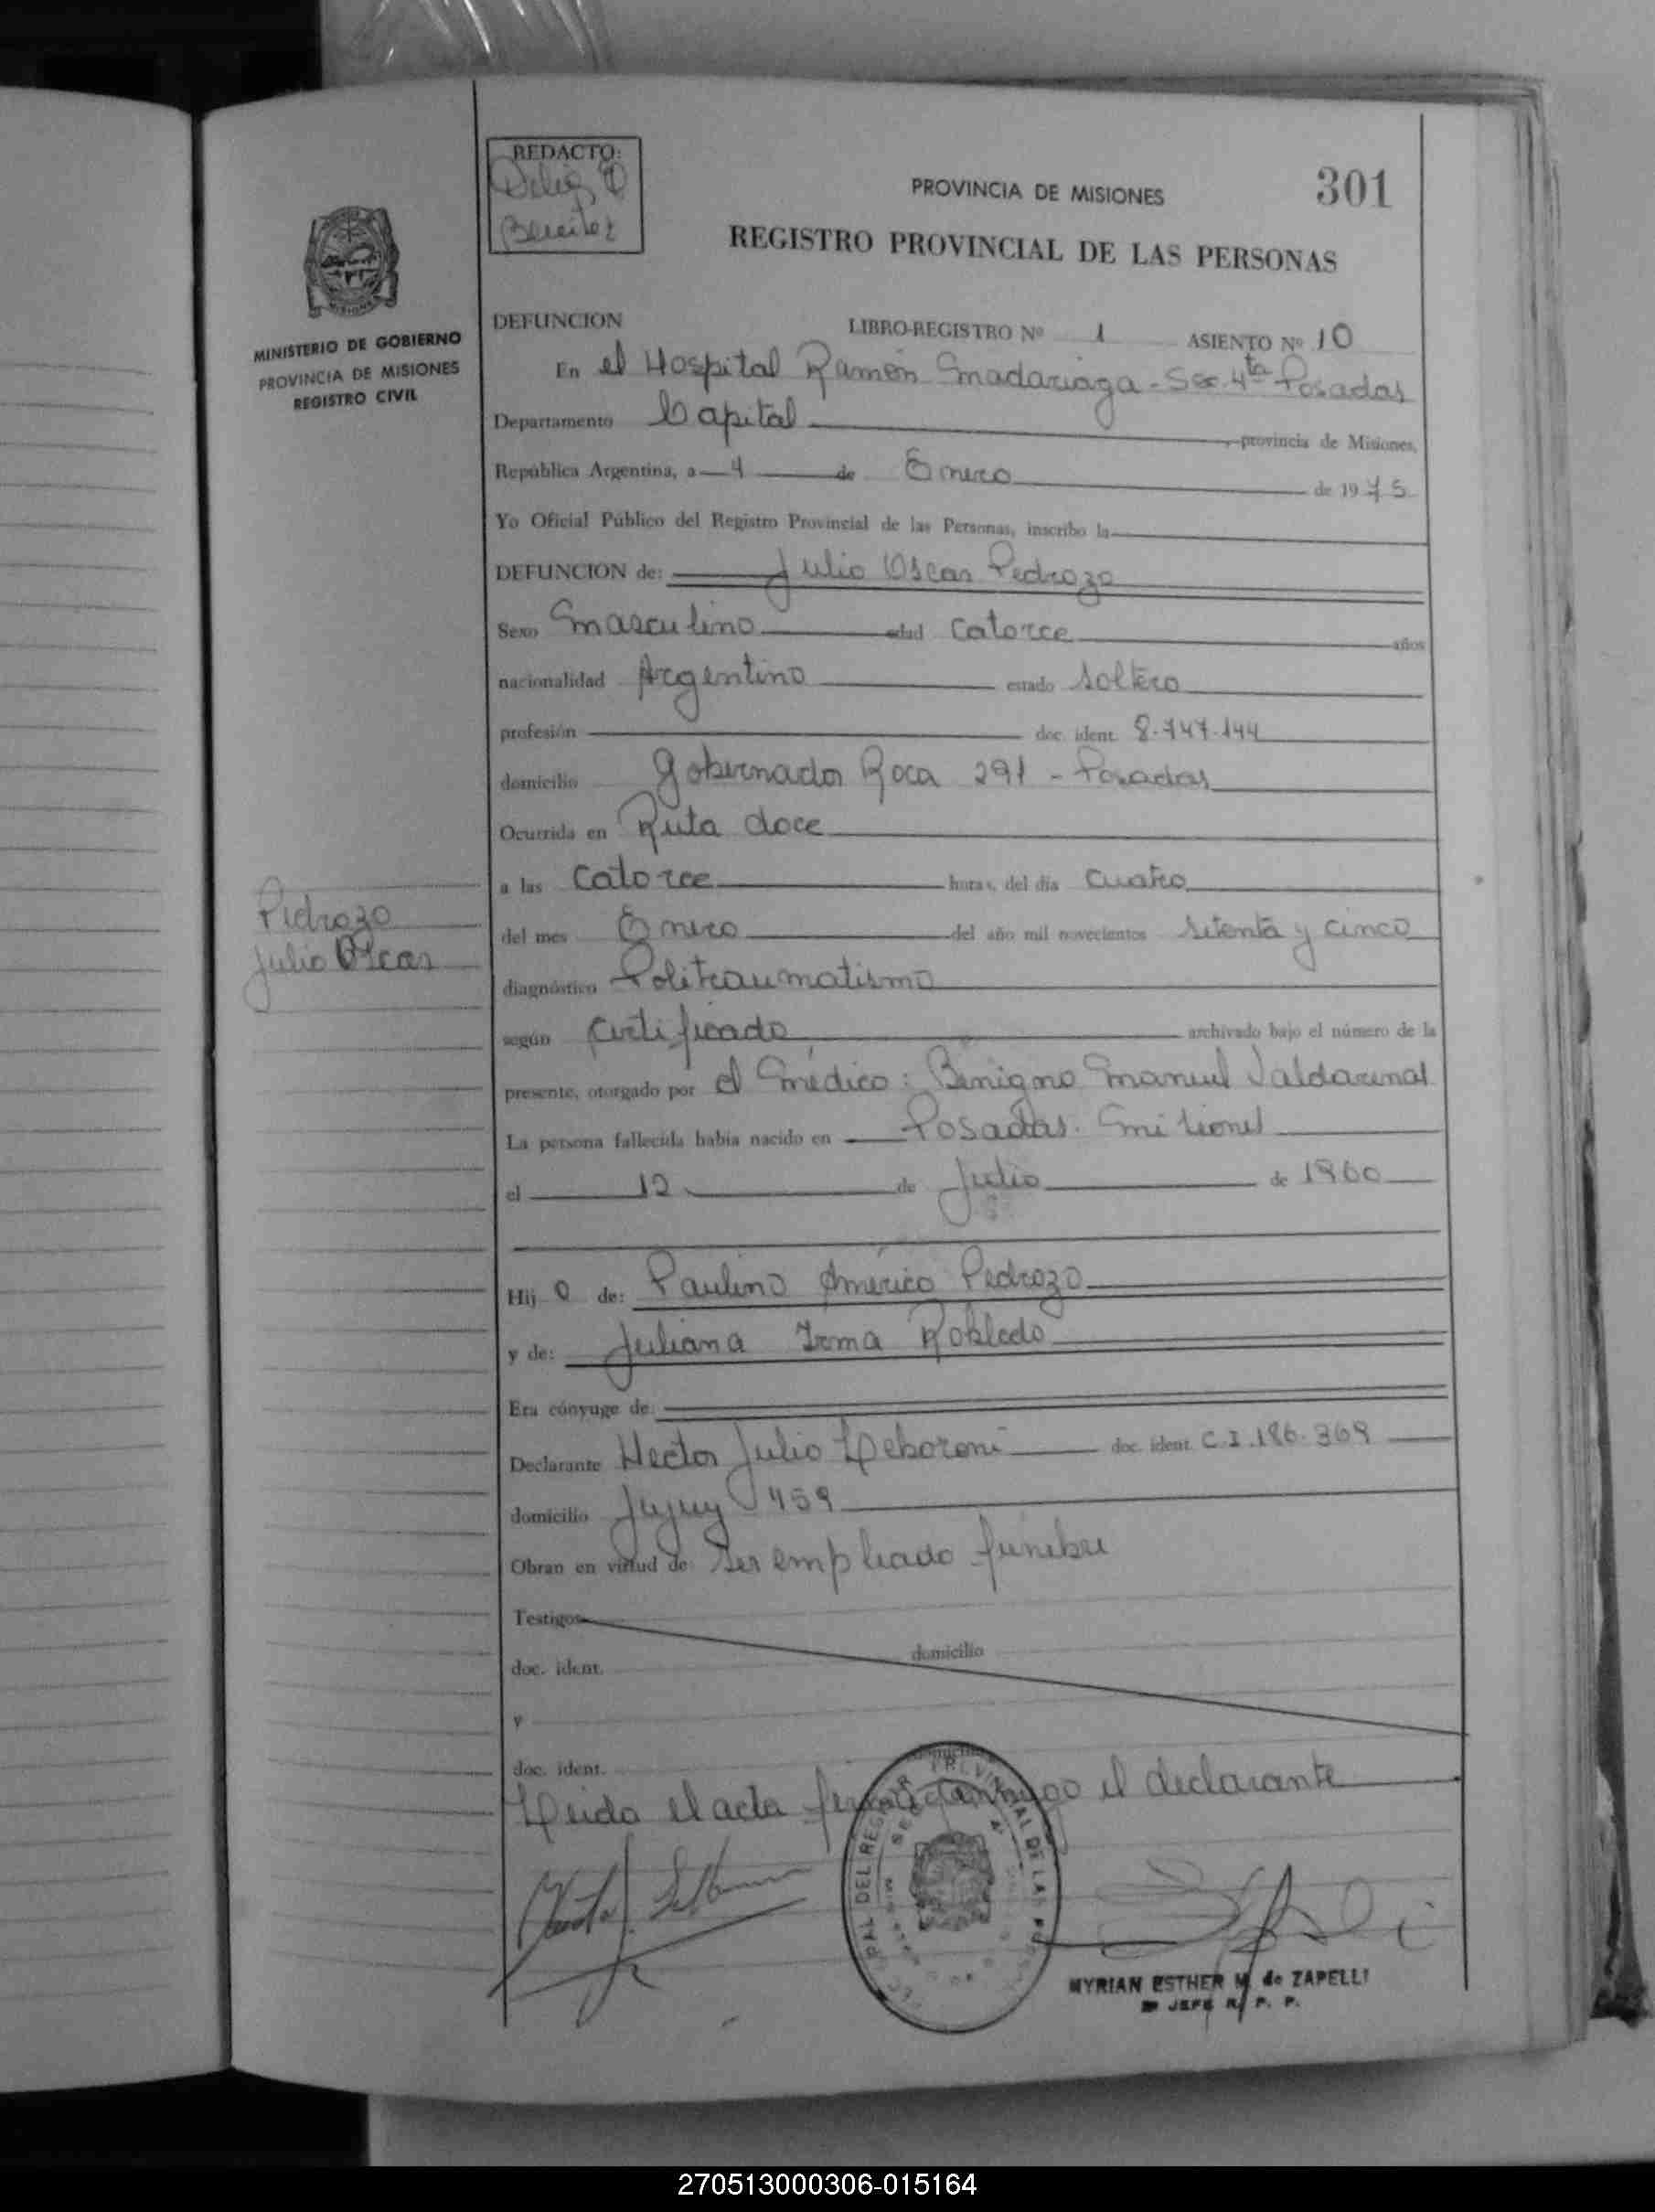 REDACTO:
Benitez
PROVINCIA DE MISIONES
301
REGISTRO PROVINCIAL DE LAS PERSONAS
MINISTERIO DE GOBIERNO
PROVINCIA DE MISIONES
REGISTRO CIVIL
DEFUNCION LIBRO-REGISTRO Nº 1 ASIENTO Nº 10
En el Hospital Ramón Madariaga - Sec. 4ta Posadas
Departamento Capital, provincia de Misiones,
República Argentina, a 4 de Enero de 1975
Yo Oficial Público del Registro Provincial de las Personas, inscribo la
DEFUNCION de: Julio Oscar Pedrozo
Sexo Masculino edad Catorce años
nacionalidad Argentino estado Soltero
profesión doc. ident. 8.747.144
domicilio Gobernador Roca 291 - Posadas
Ocurrida en Ruta doce
a las Catorce horas, del día Cuatro
del mes Enero del año mil novecientos setenta y cinco
diagnóstico Politraumatismo
según Certificado archivado bajo el número de la
presente, otorgado por el Médico: Benigno Manuel
La persona fallecida había nacido en Posadas. Misiones
el 12 de Julio de 1960
Pedrozo
Julio Oscar
Hijo de: Paulino Américo Pedrozo
y de: Juliana Irma Robledo
Era cónyuge de:
Declarante Hector Julio doc. ident. C.I. 186.369
domicilio Jujuy 459
Obran en virtud de Ser empleado fúnebre
Testigos
domicilio
doc. ident.
y
doc. ident.
Leida el acta firma conmigo el declarante
MYRIAN ESTHER M. de ZAPELLI
JEFE R. P. P.
270513000306-015164